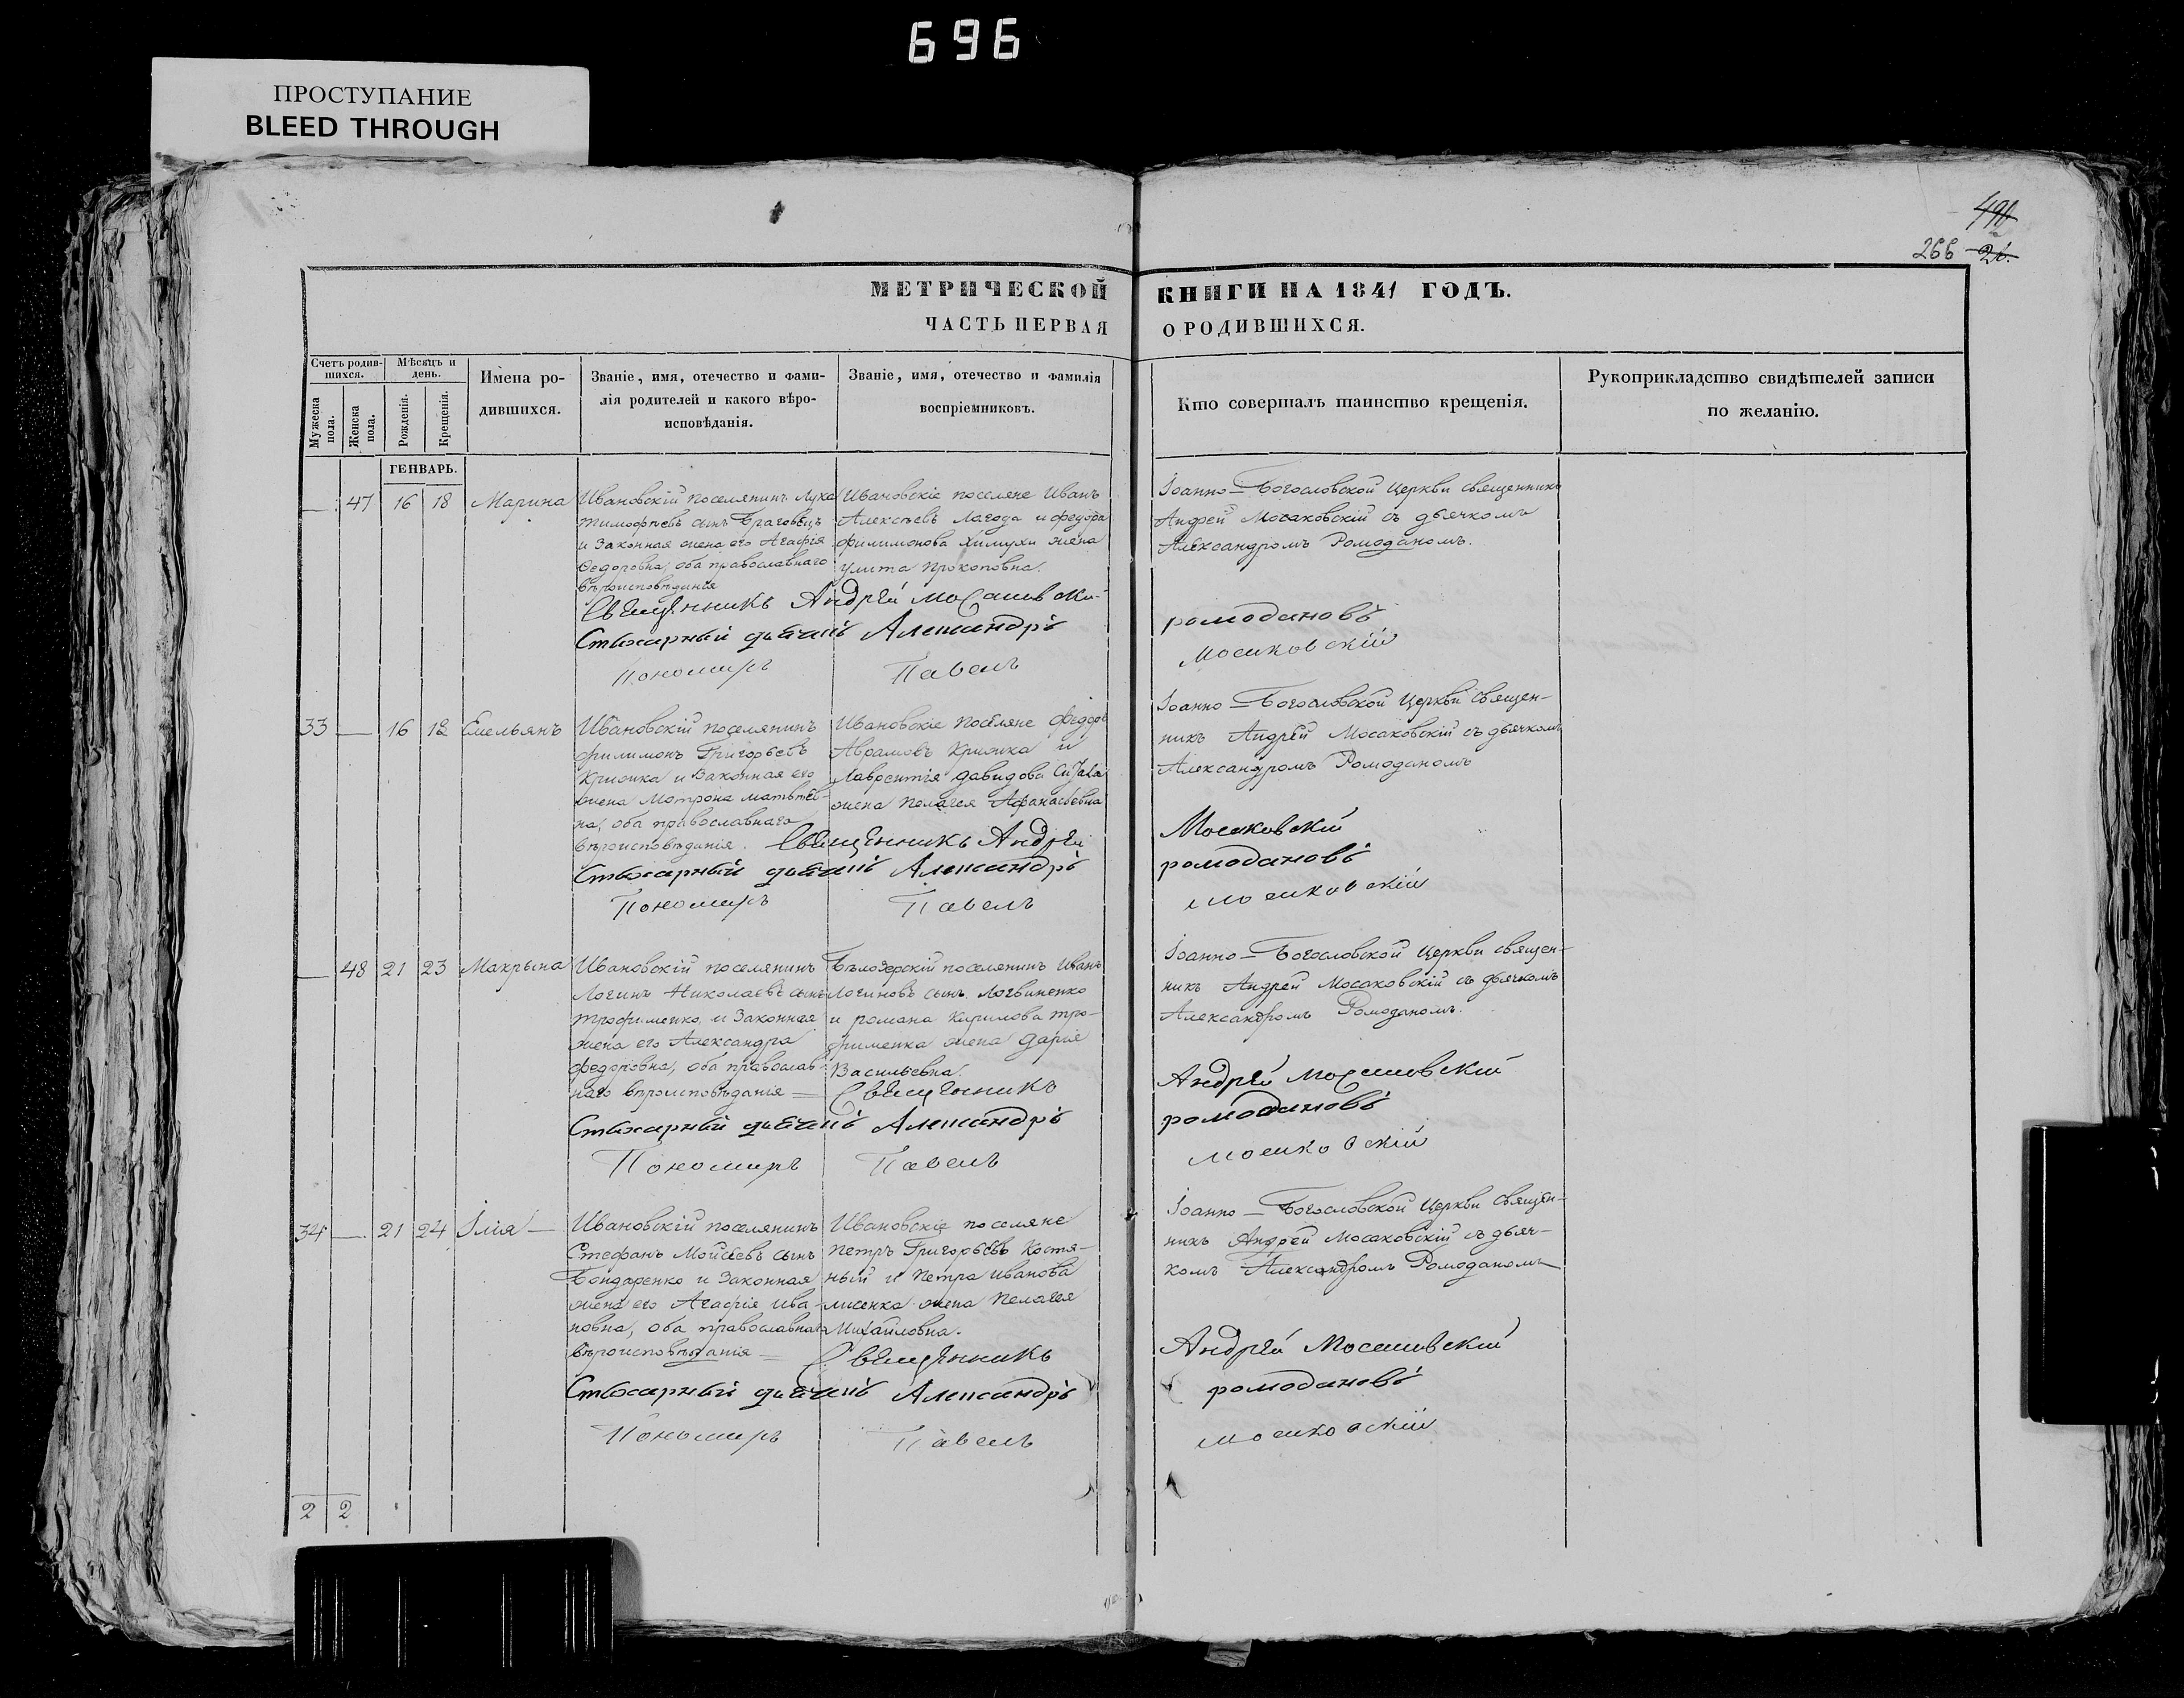 696
ПРОСТУПАНИЕ
BLEED THROUGH
266
МЕТРИЧЕСКОЙ КНИГИ НА 1841 ГОДЪ.
ЧАСТЬ ПЕРВАЯ О РОДИВШИХСЯ.
Счетъ родив-
шихся.
Мужеска пола.
Женска пола.
Мѣсяцъ и
день.
Рожденія.
Крещенія.
Имена ро-
дившихся.
Званіе, имя, отечество и фами-
лія родителей и какого вѣро-
исповѣданія.
Званіе, имя, отечество и фамилія
воспріемниковъ.
Кто совершалъ таинство крещенія.
Рукоприкладство свидѣтелей записи
по желанію.
ГЕНВАРЬ.
— 47 16 18 Марина
Ивановскій поселянинъ Лука
Тимофѣевъ сынъ Браговецъ
и Законная жена его Агафія
Федоровна, оба православнаго
вѣроисповѣданія
Ивановскіе поселяне Иванъ
Алексѣевъ Лагода и федора
филимонова Химухи жена
Улита Прокоповна.
Іоанно-Богословской Церкви священникъ
Андрей Мосаковскій съ дьячкомъ
Александромъ Ромоданомъ.
Священникъ Андрей
Стихарный дьячекъ Александръ ромодановъ
Пономарь Павелъ
33 — 16 18 Емельянъ
Ивановскій поселянинъ
филимонъ Григорьевъ
Крижка и Законная его
жена Мотрона матвѣев-
на, оба православнаго
вѣроисповѣданія.
Ивановскіе поселяне Федоръ
Аврамовъ Крижка и
Лаврентія давидова
жена Пелагея Афанасьевна
Іоанно-Богословской Церкви священ-
никъ Андрей Мосаковскій съ дьячкомъ
Александромъ Ромоданомъ
Священникъ Андрей
Стихарный дьячекъ Александръ ромодановъ
Пономарь Павелъ
— 48 21 23 Макрына
Ивановскій поселянинъ
Логинъ Николаевъ сынъ
Трофименко, и Законная
жена его Александра
федоровна, оба православ-
наго вѣроисповѣданія
Бѣлозерскій поселянинъ Иванъ
Логиновъ сынъ Логвиненко
и романа Кирилова тро-
фименка жена Дарія
Васильевна.
Іоанно-Богословской Церкви священ-
никъ Андрей Мосаковскій съ дьячкомъ
Александромъ Ромоданомъ.
Священникъ Андрей
Стихарный дьячекъ Александръ ромодановъ
Пономарь Павелъ
34 — 21 24 Ілія
Ивановскій поселянинъ
Стефанъ Мойсеевъ сынъ
Бондаренко и Законная
жена его Агафія Ива-
новна, оба православнаго
вѣроисповѣданія
Ивановскіе поселяне
Петръ Григорьевъ Костя-
ный и Петра Иванова
лисенка жена Пелагея
Михайловна.
Іоанно-Богословской Церкви священ-
никъ Андрей Мосаковскій съ дьяч-
комъ Александромъ Ромоданомъ
Священникъ Андрей
Стихарный дьячекъ Александръ ромодановъ
Пономарь Павелъ
2 2